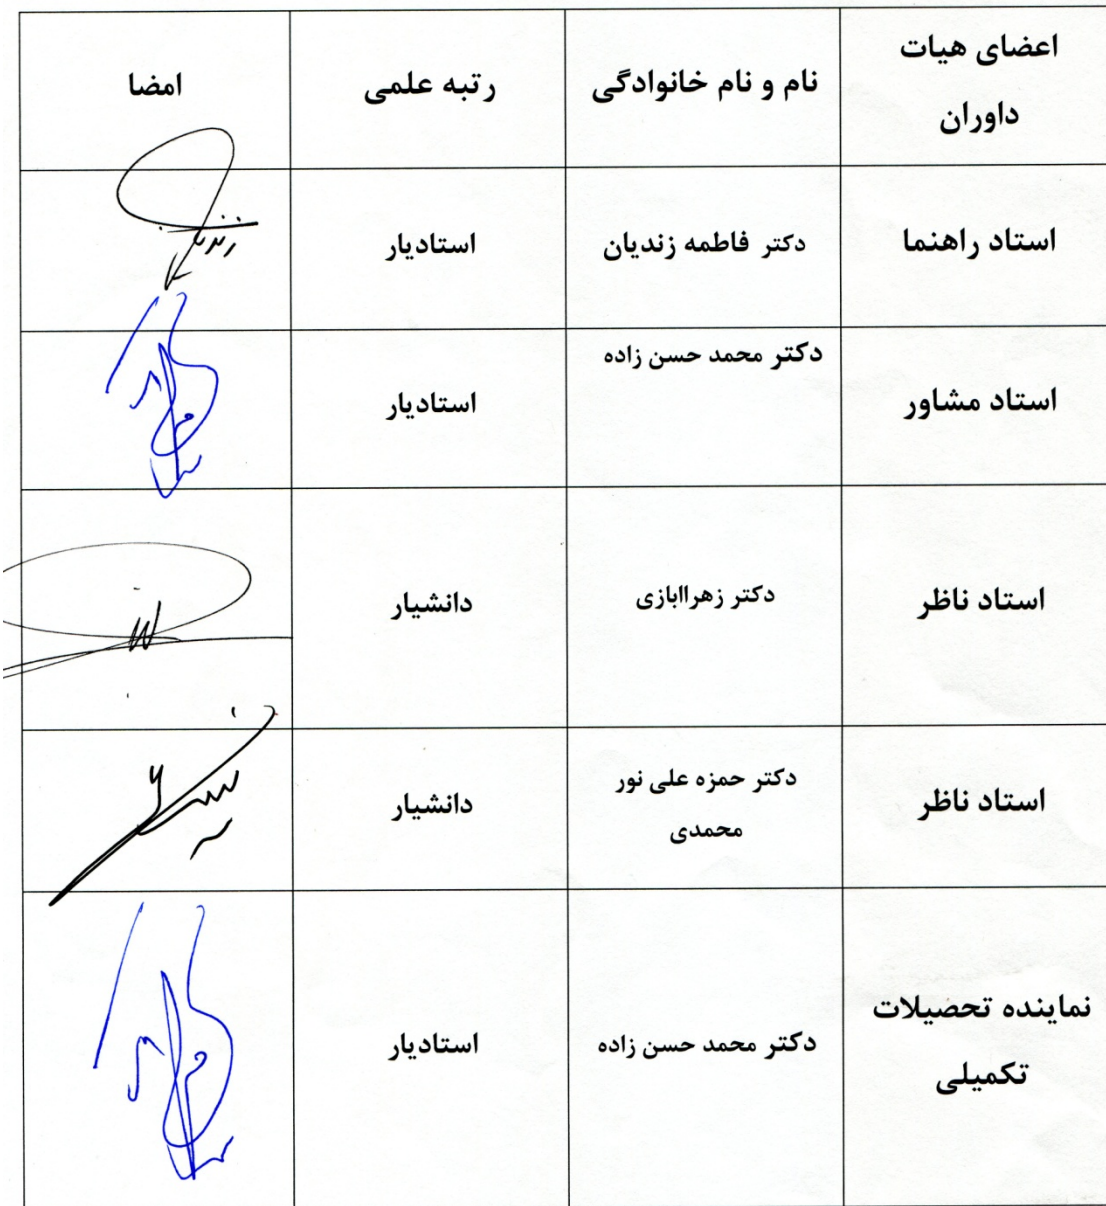 اعضای هیات
داوران
نام و نام خانوادگی
رتبه علمی
امضا
استاد راهنما
دکتر فاطمه زندیان
استادیار
استاد مشاور
دکتر محمد حسن زاده
استادیار
استاد ناظر
دکتر زهرااباذی
دانشیار
استاد ناظر
دکتر حمزه علی نور
محمدی
دانشیار
نماینده تحصیلات
تکمیلی
دکتر محمد حسن زاده
استادیار